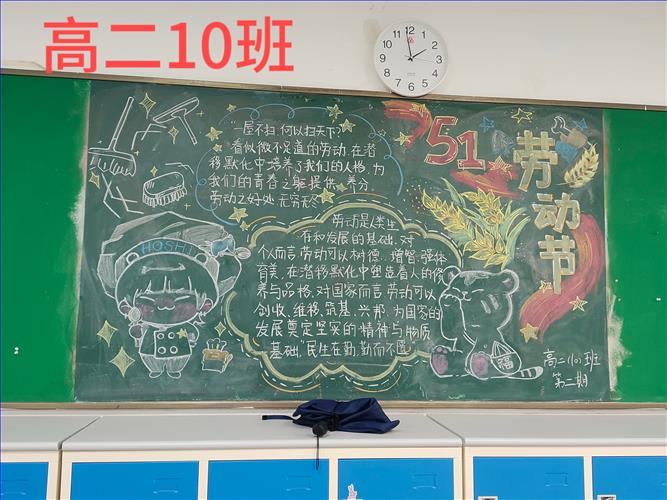 高二10班
"一屋不扫,何以扫天下?"
看似微不足道的劳动,在潜
移默化中培养了我们的人格,为
我们的青春之躯提供养分,
劳动之好处,无穷无尽
51
劳动节
劳动是人类生
存和发展的基础。对
个人而言,劳动可以树德、增智、强体、
育美,在潜移默化中塑造着人的修
养与品格。对国家而言,劳动可以
创收、维稳、筑基、兴邦,为国家的
发展奠定坚实的精神与物质
基础。"民生在勤,勤而不匮"
HOSHI
福
高二(10)班
第二期